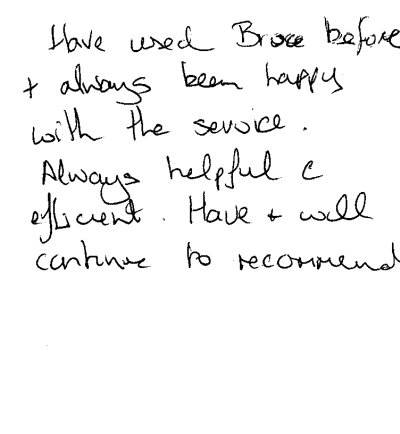 Have used Bruce before
+ always been happy
with the service.
Always helpful &
efficient. Have + will
continue to recommend